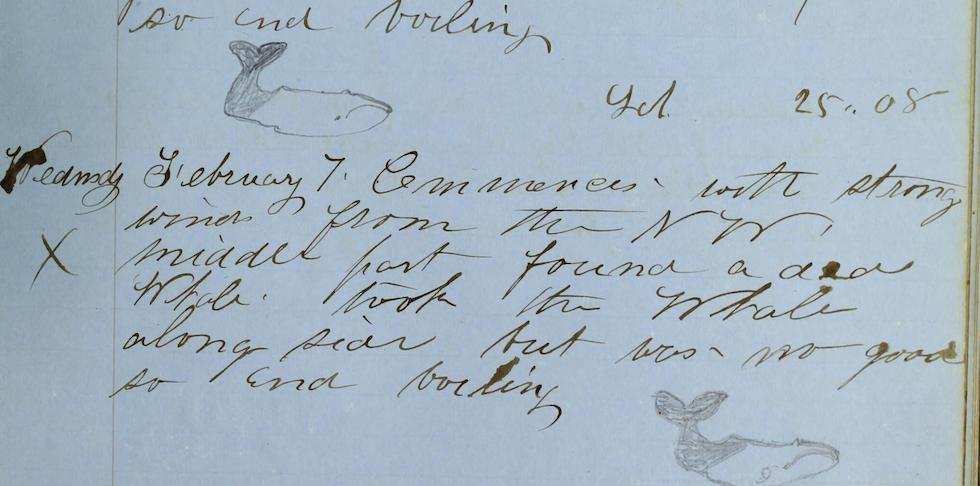 so end boiling
Lat. 25.. 08
Wednsdy February 7. Commences with strong
winds from the N W,
X middle part found a dead
Whale. took the Whale
along side but was no good
so end boiling